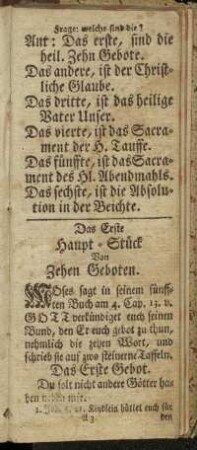 Frage: welche sind die?
Ant: Das erste, sind die
heil. Zehn Gebote.
Das andere, ist der Christ-
liche Glaube.
Das dritte, ist das heilige
Vater Unser.
Das vierte, ist das Sacra-
ment der H. Tauffe.
Das fünffte, ist das Sacra-
ment des Hl. Abendmahls.
Das sechste, ist die Absolu-
tion in der Beichte.
Das Erste
Haupt-Stück
Von
Zehen Geboten.
MOses sagt in seinem fünff-
ten Buch am 4. Cap. 13. v.
GOTT verkündiget euch seinen
Bund, den Er euch gebot zu thun,
nehmlich die zehen Wort, und
schrieb sie auf zwo steinerne Taffeln.
Das Erste Gebot.
Du solt nicht andere Götter ha-
ben neben mir.
1. Joh. 5, 21. Kindlein hütet euch für
A 3 den